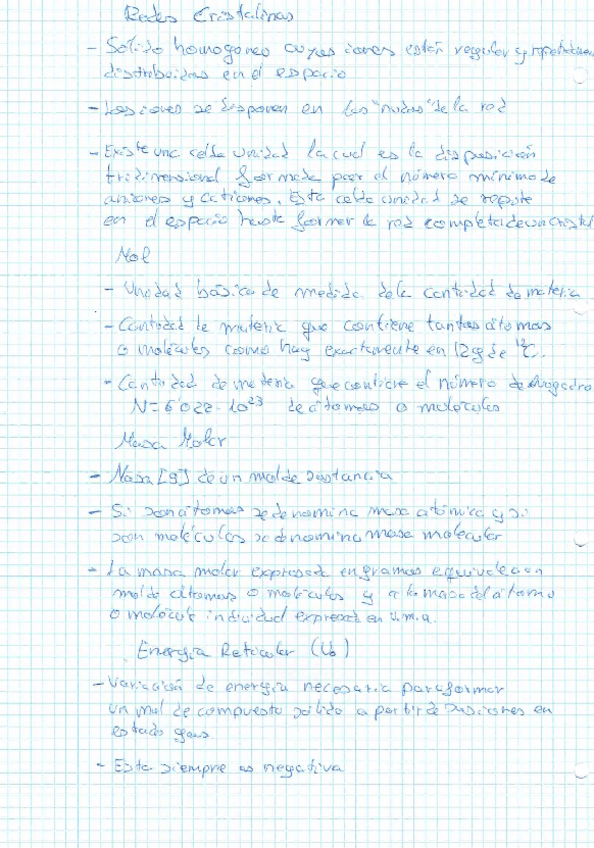 Redes Cristalinas
- Sólido homogeneo cuyos iones están regular y
distribuidos en el espacio
- Los iones se disponen en los "nudos" de la red
- Existe una celda unidad la cual es la disposición
tridimensional formada por el número mínimo de
aniones y cationes. Esta celda unidad se repite
en el espacio hasta formar la red completa de un cristal
Mol
- Unidad básica de medida de la cantidad de materia
- Cantidad de materia que contiene tantas átomos
o moléculas como hay exactamente en 12g de ¹²C.
- Cantidad de materia que contiene el número de Avogadro
N=6'022·10²³ de átomos o moléculas
Masa Molar
- Masa [g] de un mol de sustancia
- Si son átomos se denomina masa atómica y si
son moléculas se denomina masa molecular
- La masa molar expresada en gramos equivale a un
mol de átomos o moléculas y a la masa del átomo
o molécula individual expresada en u.m.a.
Energía Reticular (U₀)
- Variación de energía necesaria para formar
un mol de compuesto sólido a partir de sus iones en
estado gas
- Esta siempre es negativa